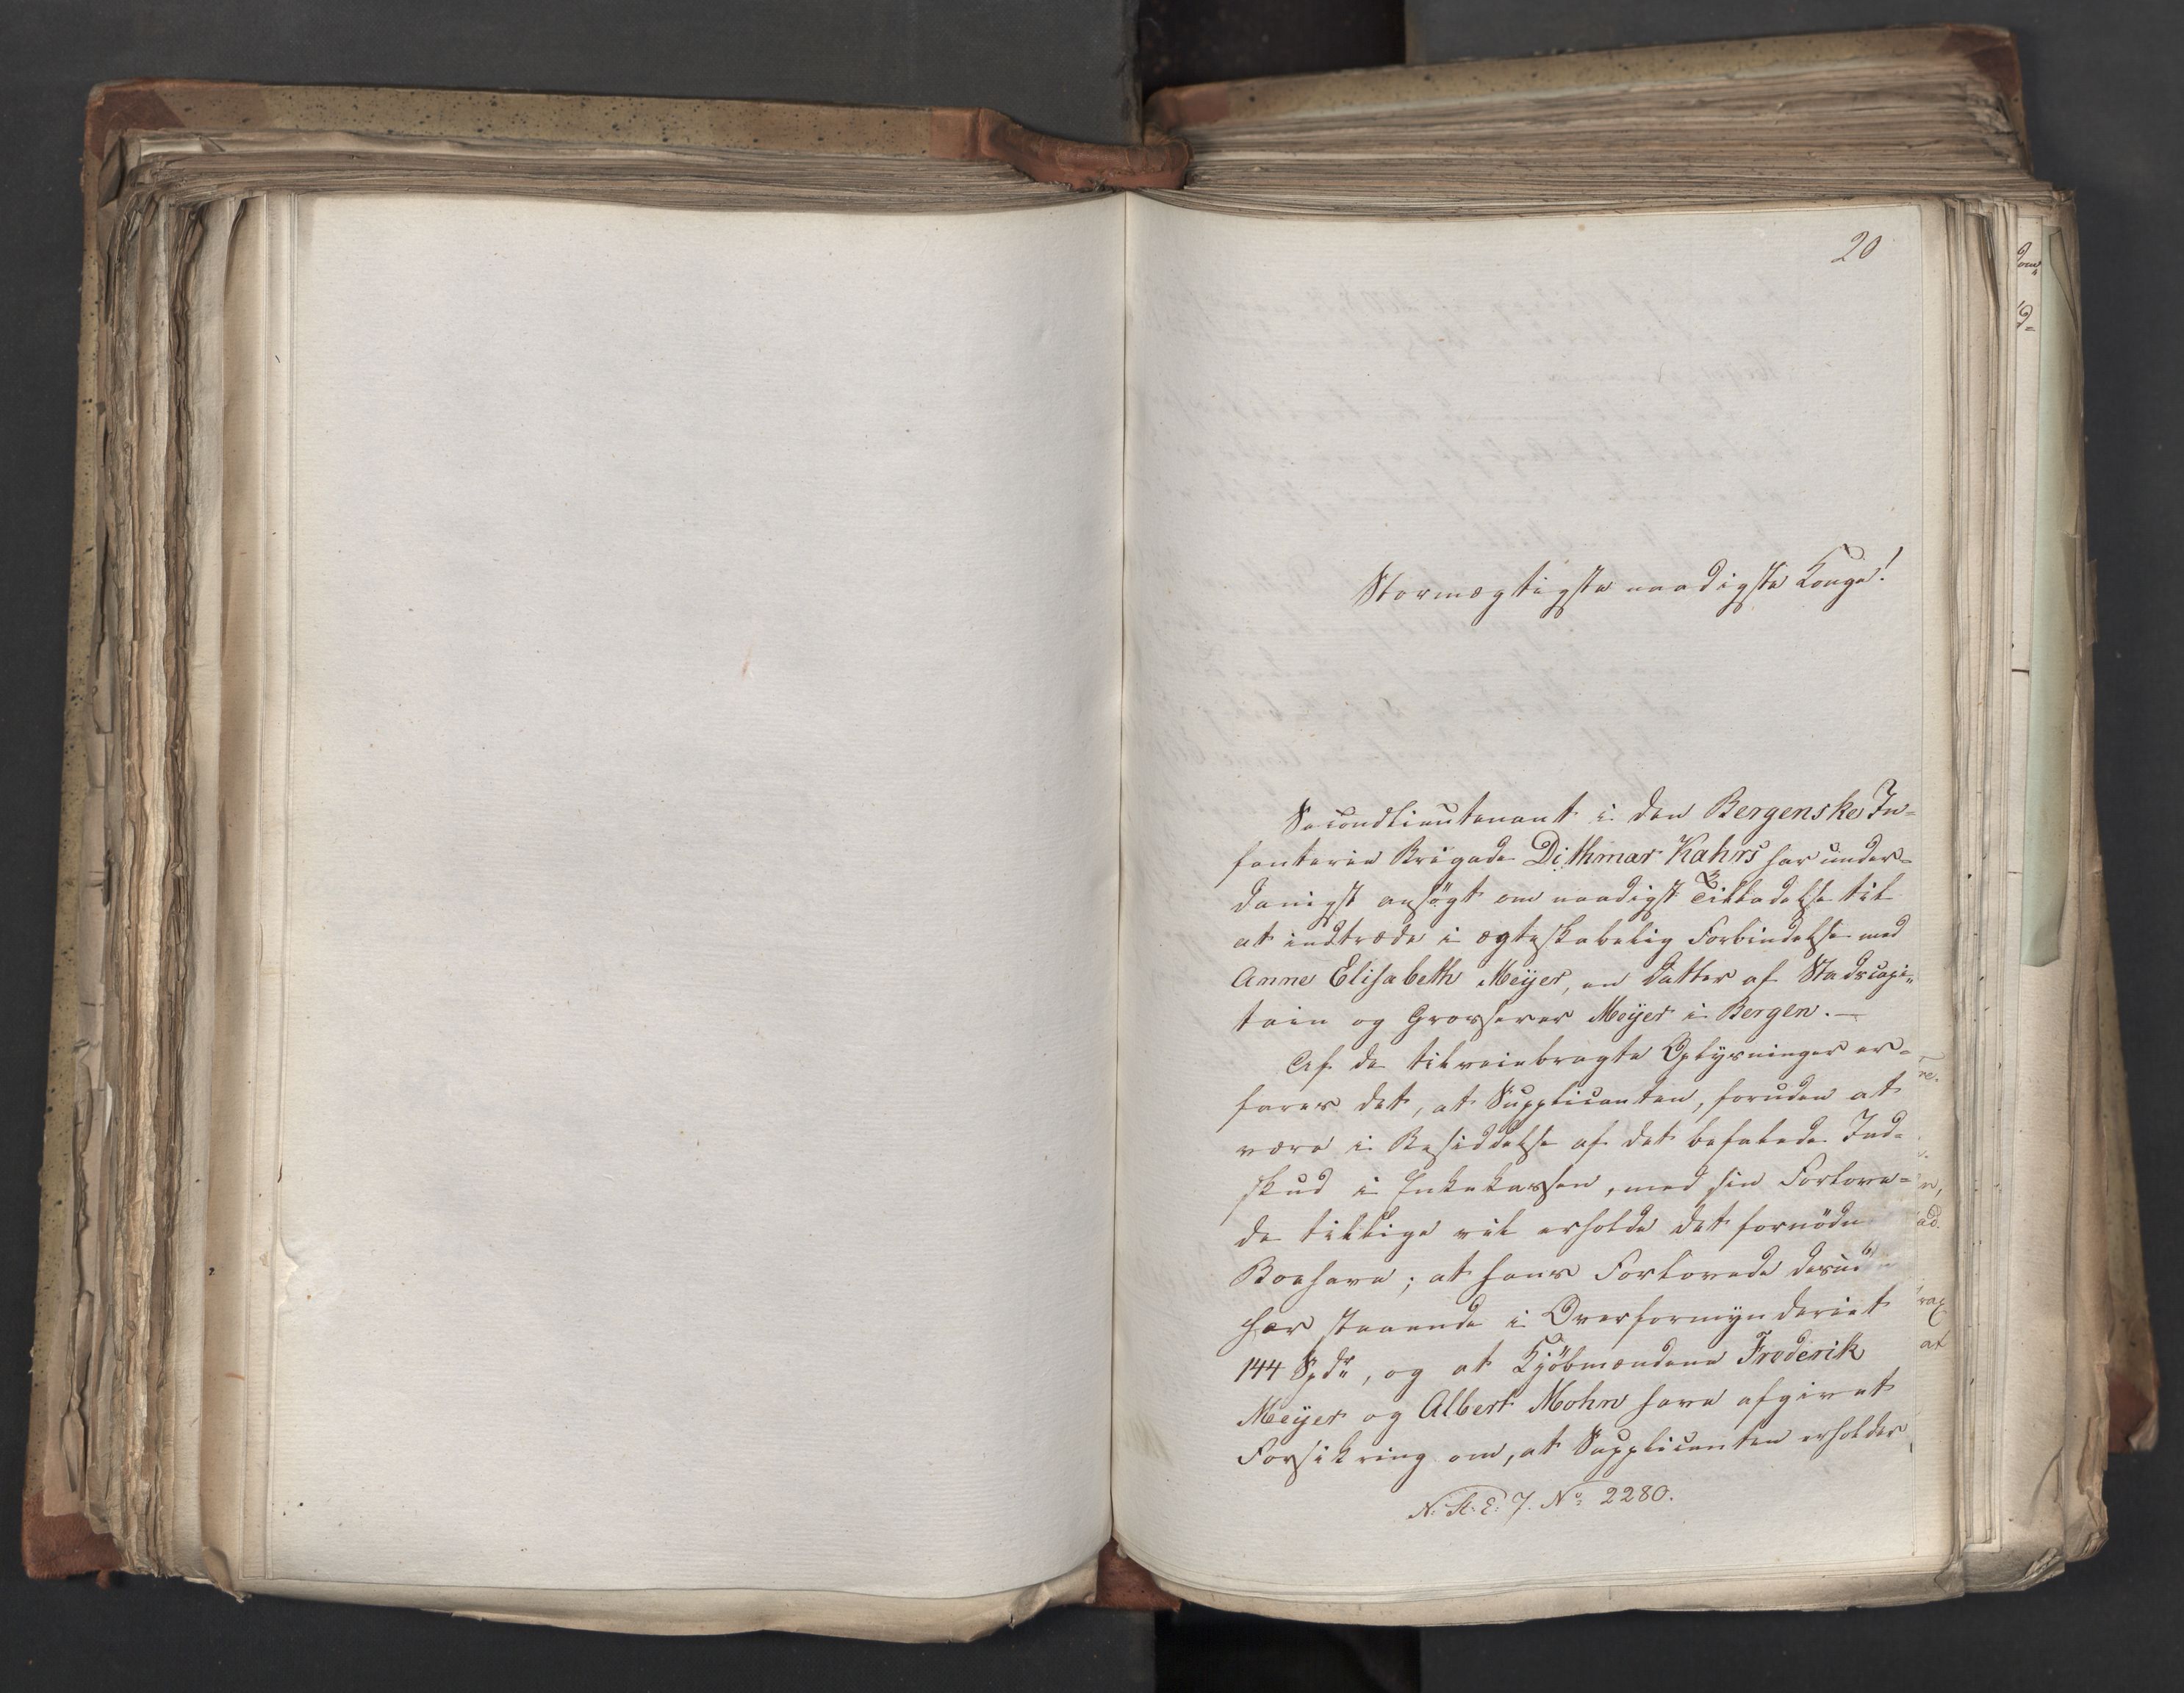 20
Stormægtigste naadigste Konge!
Secondlieutenant i den Bergenske In-
fanterie Brigade Dithmar Kahrs har under-
danigst ansögt om naadigst Tilladelse til
at indtræde i ægteskabelig Forbindelse med
Anne Elisabeth Meÿer, en Datter af Stadscapi-
tain og Grosserer Meÿer i Bergen. —
Af de tilveiebragte Oplÿsninger er-
fares det, at Supplicanten, foruden at
være i Besiddelse af det befalede Ind-
skud i Enkekassen, med sin Forlove-
de tillige vil erholde det fornödne
Boehave; at hans Forlovede desud
har staaende i Overformÿnderiet
144 Spdr, og at Kjöbmændene Frederik
Meÿer og Albert Mohn have afgivet
Forsikring om, at Supplicanten erholder
N: St: E: 7. No 2280.